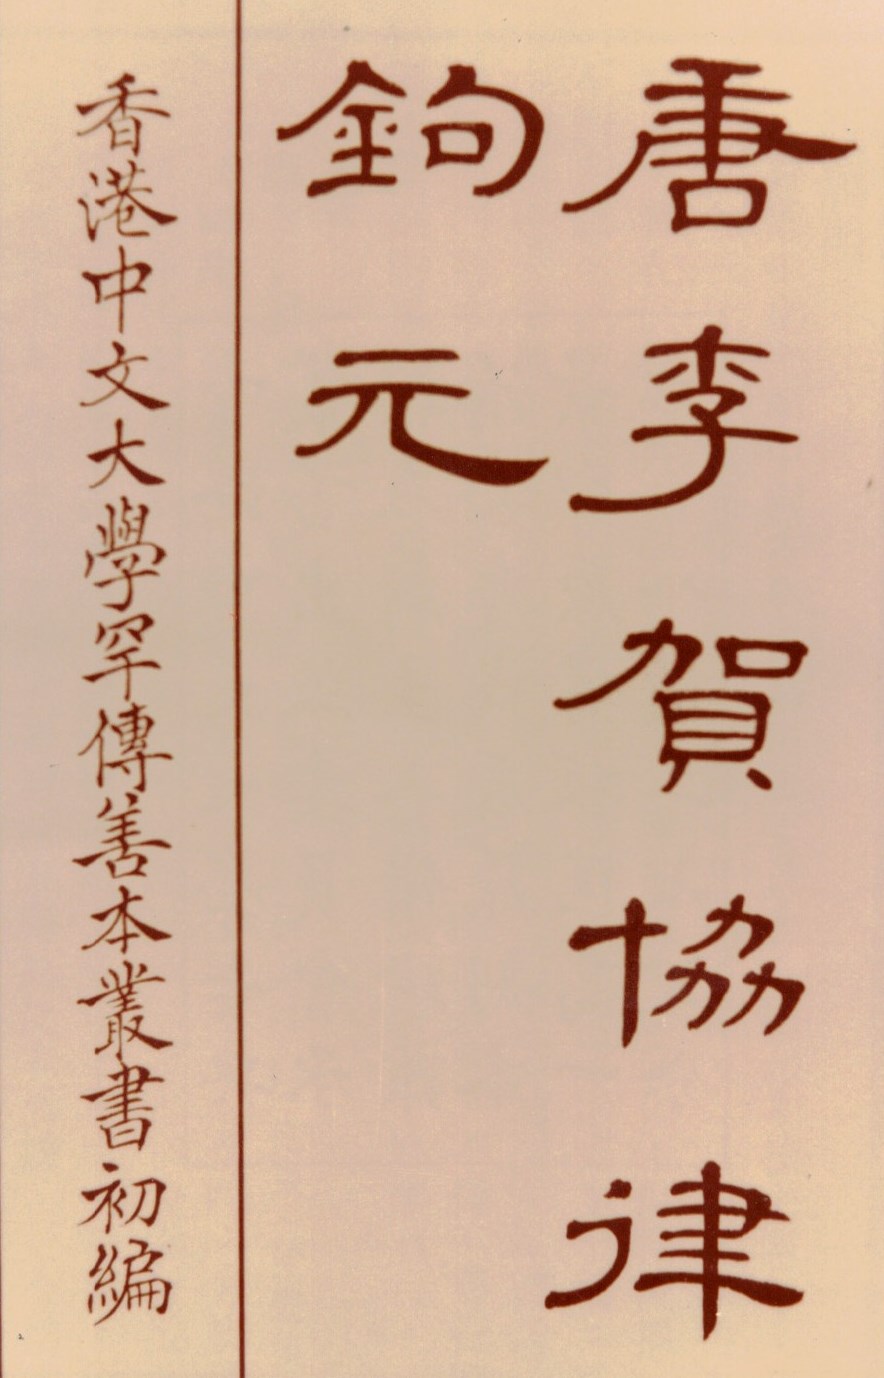 唐李賀協律
鉤元
香港中文大學罕傳善本叢書初編